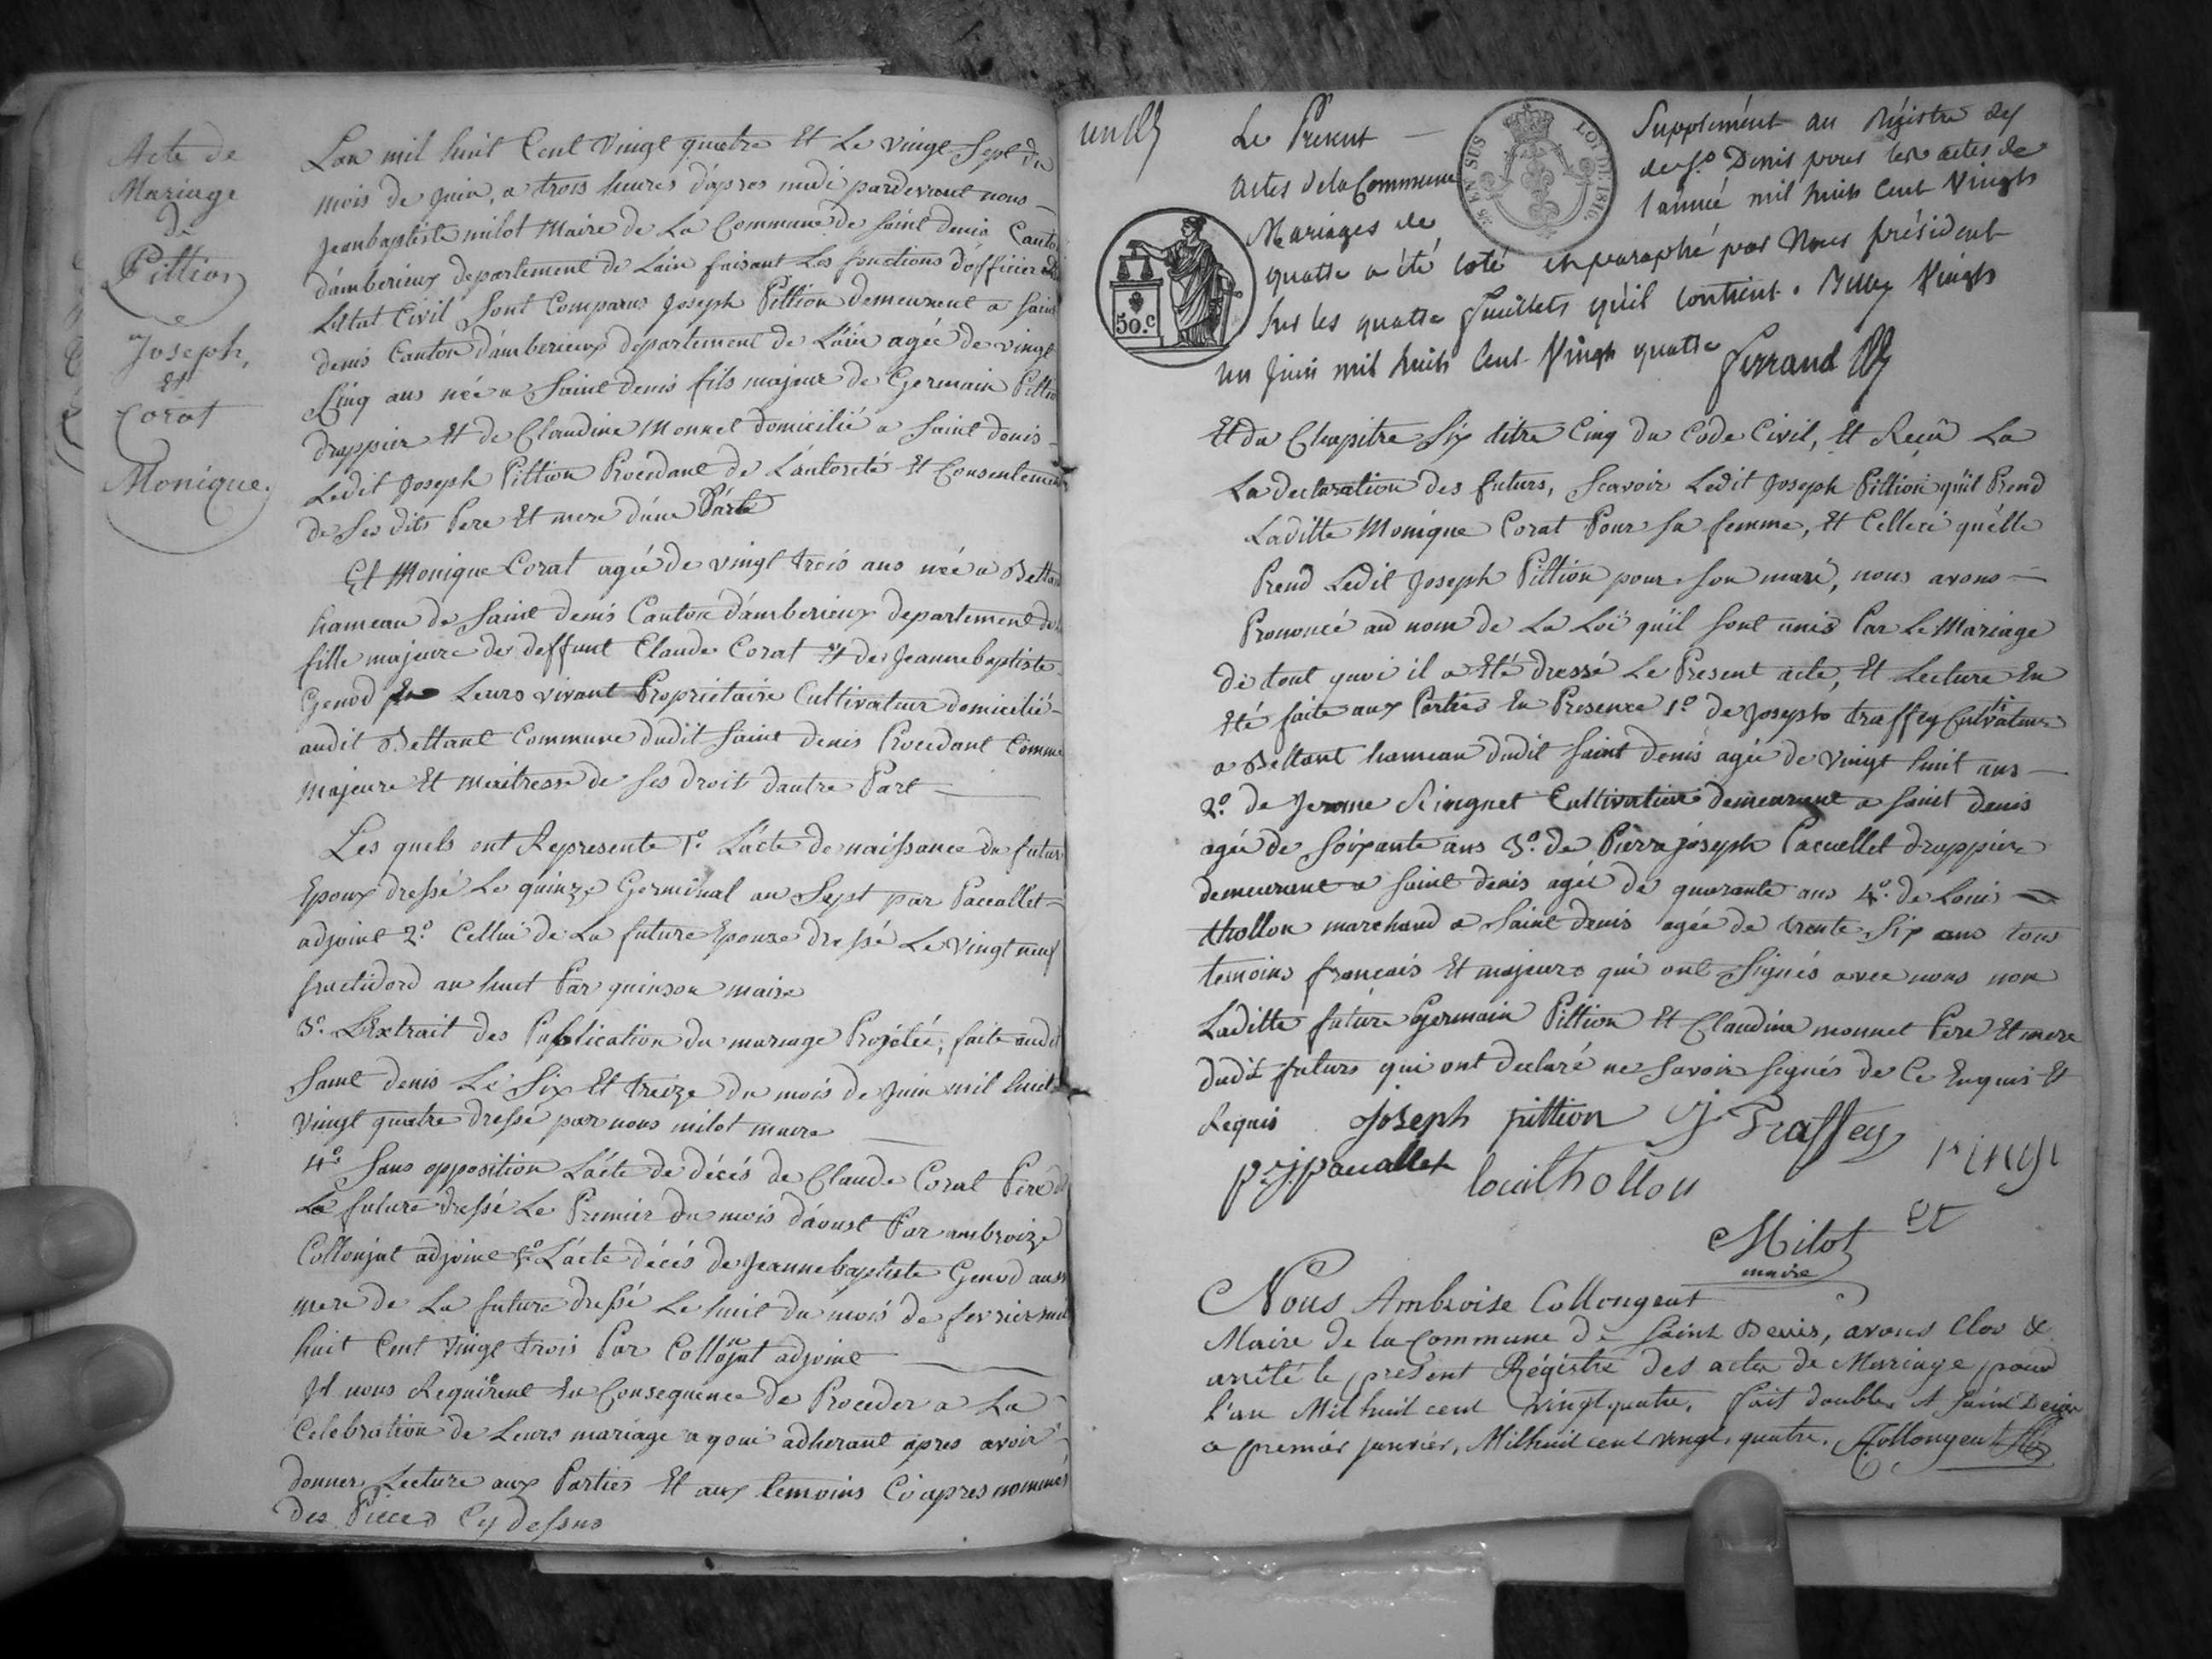 Acte de
Mariage
de
Pittion
Joseph,
et
Corat
Monique.
Lan mil huit Cent Vingt quatre Et Le vingt Sept du
mois de Juin, a trois heures d'apres midi pardevant nous
Jeanbaptiste milot Maire de La Commune de Saint denis Canton
d'amberieux departement de L'ain faisant Les fonctions d'officier de
Letat Civil Sont Comparus Joseph Pittion demeurent a Saint
denis Canton d'amberieux departement de L'ain agée de vingt
Cinq ans née a Saint denis fils majeur de Germain Pittion
drappier Et de Claudine Monnet domicilié a Saint denis
Ledit Joseph Pittion Procedant de L'autorité Et Consentement
de Ses dits Pere Et mere d'une Parte
Et Monique Corat agée de vingt trois ans née a Bettant
hameau de Saint denis Canton d'amberieux departement de
fille majeure de deffunt Claude Corat Et de Jeannebaptiste
Genod Leurs vivant Proprietaire Cultivateur domicilié
audit Bettant Commune dudit Saint denis Procedant Comme
majeure Et maitresse de Ses droit dautre Part
Les quels ont Represente 1º. L'acte de naissance du futur
Epoux dressé Le quinze Germinal an Sept par Paccallet
adjoint 2º. Cellui de La future Epouze dressé Le Vingt neuf
fructidord an huit Par quinson maire
3º. L'Extrait des Publication du mariage Projétée, faite audit
Saint denis Le Six Et treize du mois de Juin mil huit
vingt quatre dressé par nous milot maire
4º. Sans opposition L'acte de décés de Claude Corat Pere de
La future dressé Le Premier du mois d'aoust Par ambroize
Collonjat adjoint 5º. L'acte décés de Jeannebaptiste Genod aussi
mere de La future dressé Le huit du mois de fevrier mil
huit Cent vingt trois Par Collonjat adjoint
Et nous Requirent En Consequence de Proceder a La
Celebration de Leurs mariage a quoi adherant apres avoir
donner Lecture aux Parties Et aux temoins Ci apres nommés
des Pieces Cy dessus
Le Present
Supplément au Régistre des
actes de la Commune
de St. Denis pour les actes de
Mariages de
l'année mil huit Cent Vingt
LOI DE 1816.
EN SUS
50.c
quatre a été coté et paraphé par Nous président
Sur les quatre feuillets qu'il contient. Belley Vingt
un Juin mil huit Cent Vingt quatre Ferrand
Et du Chapitre Six titre Cinq du Code Civil, Et Reçu La
La declaration des futurs, Scavoir Ledit Joseph Pittion quil Prend
Laditte Monique Corat Pour Sa femme, Et Celleci qu'elle
Prend Ledit Joseph Pittion pour Son mari, nous avons
Prononcé au nom de La Loi quil Sont unis Par Le Mariage
de tout quoi il a Eté dressé Le Present acte, Et Lecture En
Eté faite aux Parties En Presence 1º. de Joseph traffey Cultivateur
a Bettant hameau dudit Saint denis agée de vingt huit ans
2º. de Jerome Ringuet Cultivateur demeurent a Saint denis
agée de Soixante ans 3º. de Pierre joseph Paccallet drappier
demeurant a Saint denis agée de quarante ans 4º. de Louis
thollon marchand a Saint denis agée de trente Six ans tous
temoins français Et majeurs qui ont Signés avec nous non
Laditte future Germain Pittion Et Claudine monnet Pere Et mere
dudit futurs qui ont declaré ne Savoir Signés de Ce Enquis Et
Requis Joseph pittion J Traffey ringu
pre j. pacallet louis thollon
et
Milot
maire
Nous Ambroise Collongeat
Maire de la Commune de Saint Denis, avons Clos &
arrêté le présent Régistre des actes de Mariage pour
l'an Mil huit cent vingt quatre. fait double A Saint Denis
a premier janvier, Mil huit cent vingt, quatre. Collongeat